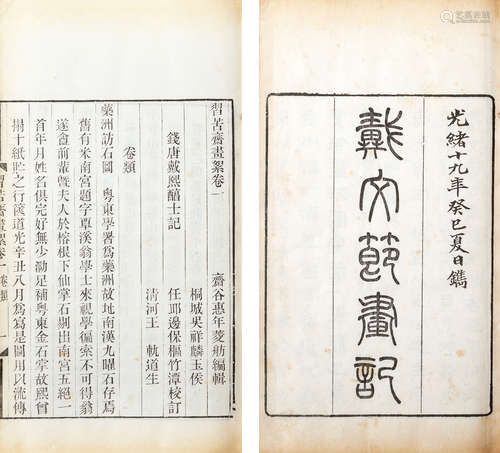 光緒十九年癸巳夏日鐫
戴文節畫記
習苦齋畫絮卷一 齋谷惠年菱舫編輯
桐城吳祥麟玉侯
錢唐戴熙醕士記 任邱邊保樞竹潭校訂
清河王 軌道生
卷類
藥洲訪石圖 粵東學習爲藥洲故地南漢九曜石存焉
舊有米南宮題字覃溪翁學士來視學徧索不可得翁
遂盦前輩暨夫人於榕根下仙掌石剔出南宮五絕一
首年月姓名俱完好無少泐足補粵東金石掌故熙曾
搨十紙貯之行篋道光辛丑八月爲寫是圖用以流傳
習苦齋畫絮卷一 卷類 一